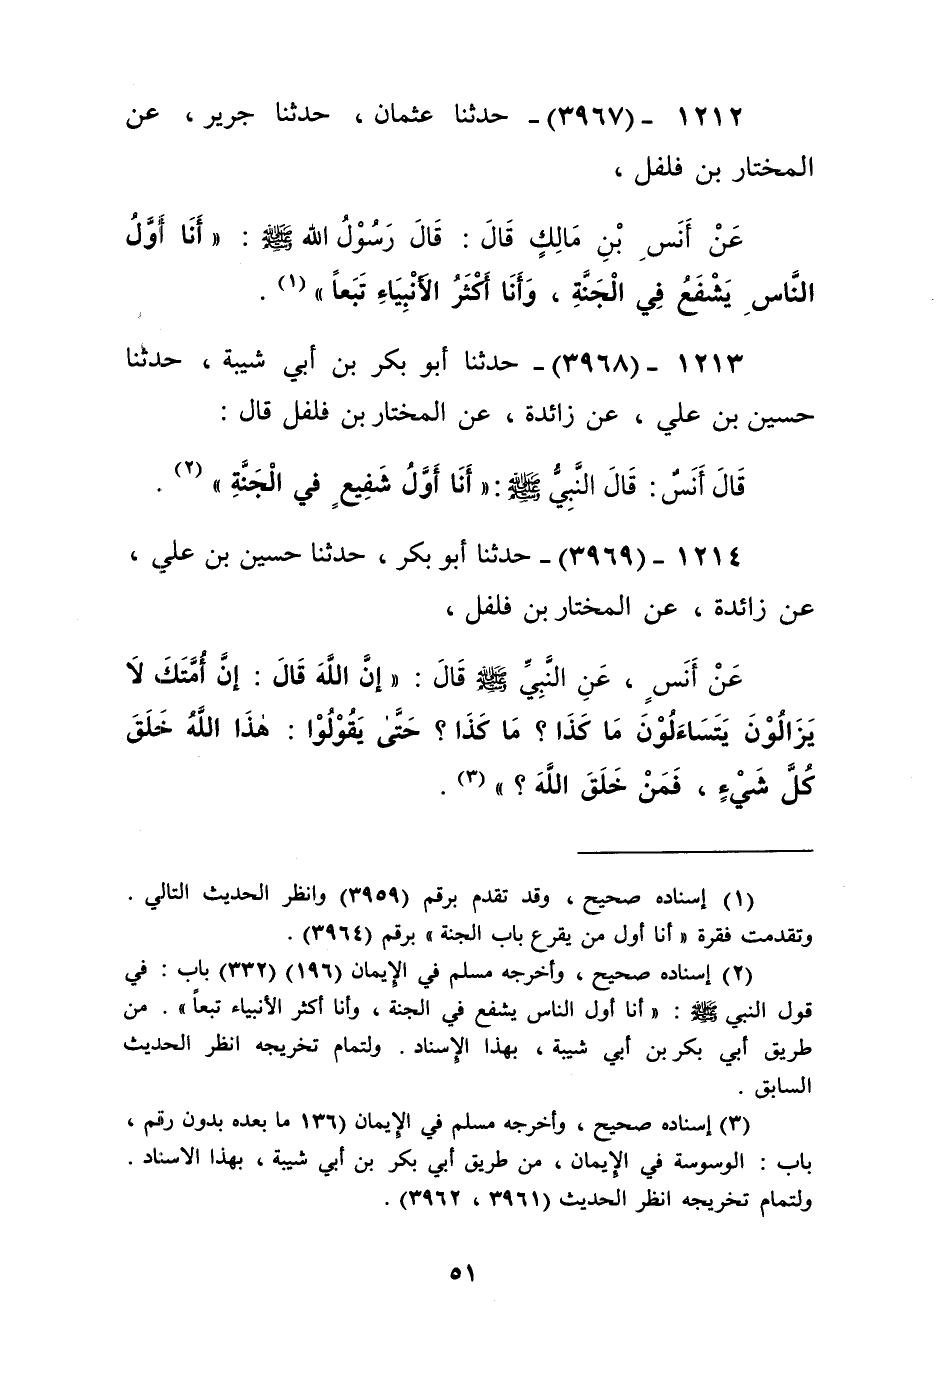 ١٢١٢ ـ (٣٩٦٧) ـ حدثنا عثمان ، حدثنا جرير ، عن
المختار بن فلفل ،
عَنْ أَنَسِ بْنِ مَالِكٍ قَالَ : قَالَ رَسُوْلُ الله ﷺ : « أَنَا أَوَّلُ
النَّاسِ يَشْفَعُ فِي الْجَنَّةِ ، وَأَنَا أَكْثَرُ الأَنْبِيَاءِ تَبَعاً » (١) .
١٢١٣ ـ (٣٩٦٨) ـ حدثنا أبو بكر بن أبي شيبة ، حدثنا
حسين بن علي ، عن زائدة ، عن المختار بن فلفل قال :
قَالَ أَنَسٌ : قَالَ النَّبِيُّ ﷺ : « أَنَا أَوَّلُ شَفِيعٍ في الْجَنَّةِ » (٢) .
١٢١٤ ـ (٣٩٦٩) ـ حدثنا أبو بكر ، حدثنا حسين بن علي ،
عن زائدة ، عن المختار بن فلفل ،
عَنْ أَنَسٍ ، عَنِ النَّبِيِّ ﷺ قَالَ : « إنَّ اللَّهَ قَالَ : إنَّ أُمَّتَكَ لَا
يَزَالُوْنَ يَتَسَاءَلُوْنَ مَا كَذَا ؟ مَا كَذَا ؟ حَتَّىٰ يَقُوْلُوْا : هٰذَا اللَّهُ خَلَقَ
كُلَّ شَيْءٍ ، فَمَنْ خَلَقَ اللَّهَ ؟ » (٣) .
(١) إسناده صحيح ، وقد تقدم برقم (٣٩٥٩) وانظر الحديث التالي .
وتقدمت فقرة « أنا أول من يقرع باب الجنة » برقم (٣٩٦٤) .
(٢) إسناده صحيح ، وأخرجه مسلم في الإيمان (١٩٦) (٣٣٢) باب : في
قول النبي ﷺ : « أنا أول الناس يشفع في الجنة ، وأنا أكثر الأنبياء تبعاً » . من
طريق أبي بكر بن أبي شيبة ، بهذا الإسناد . ولتمام تخريجه انظر الحديث
السابق .
(٣) إسناده صحيح ، وأخرجه مسلم في الإيمان (١٣٦ ما بعده بدون رقم ،
باب : الوسوسة في الإيمان ، من طريق أبي بكر بن أبي شيبة ، بهذا الاسناد .
ولتمام تخريجه انظر الحديث (٣٩٦١ ، ٣٩٦٢) .
٥١